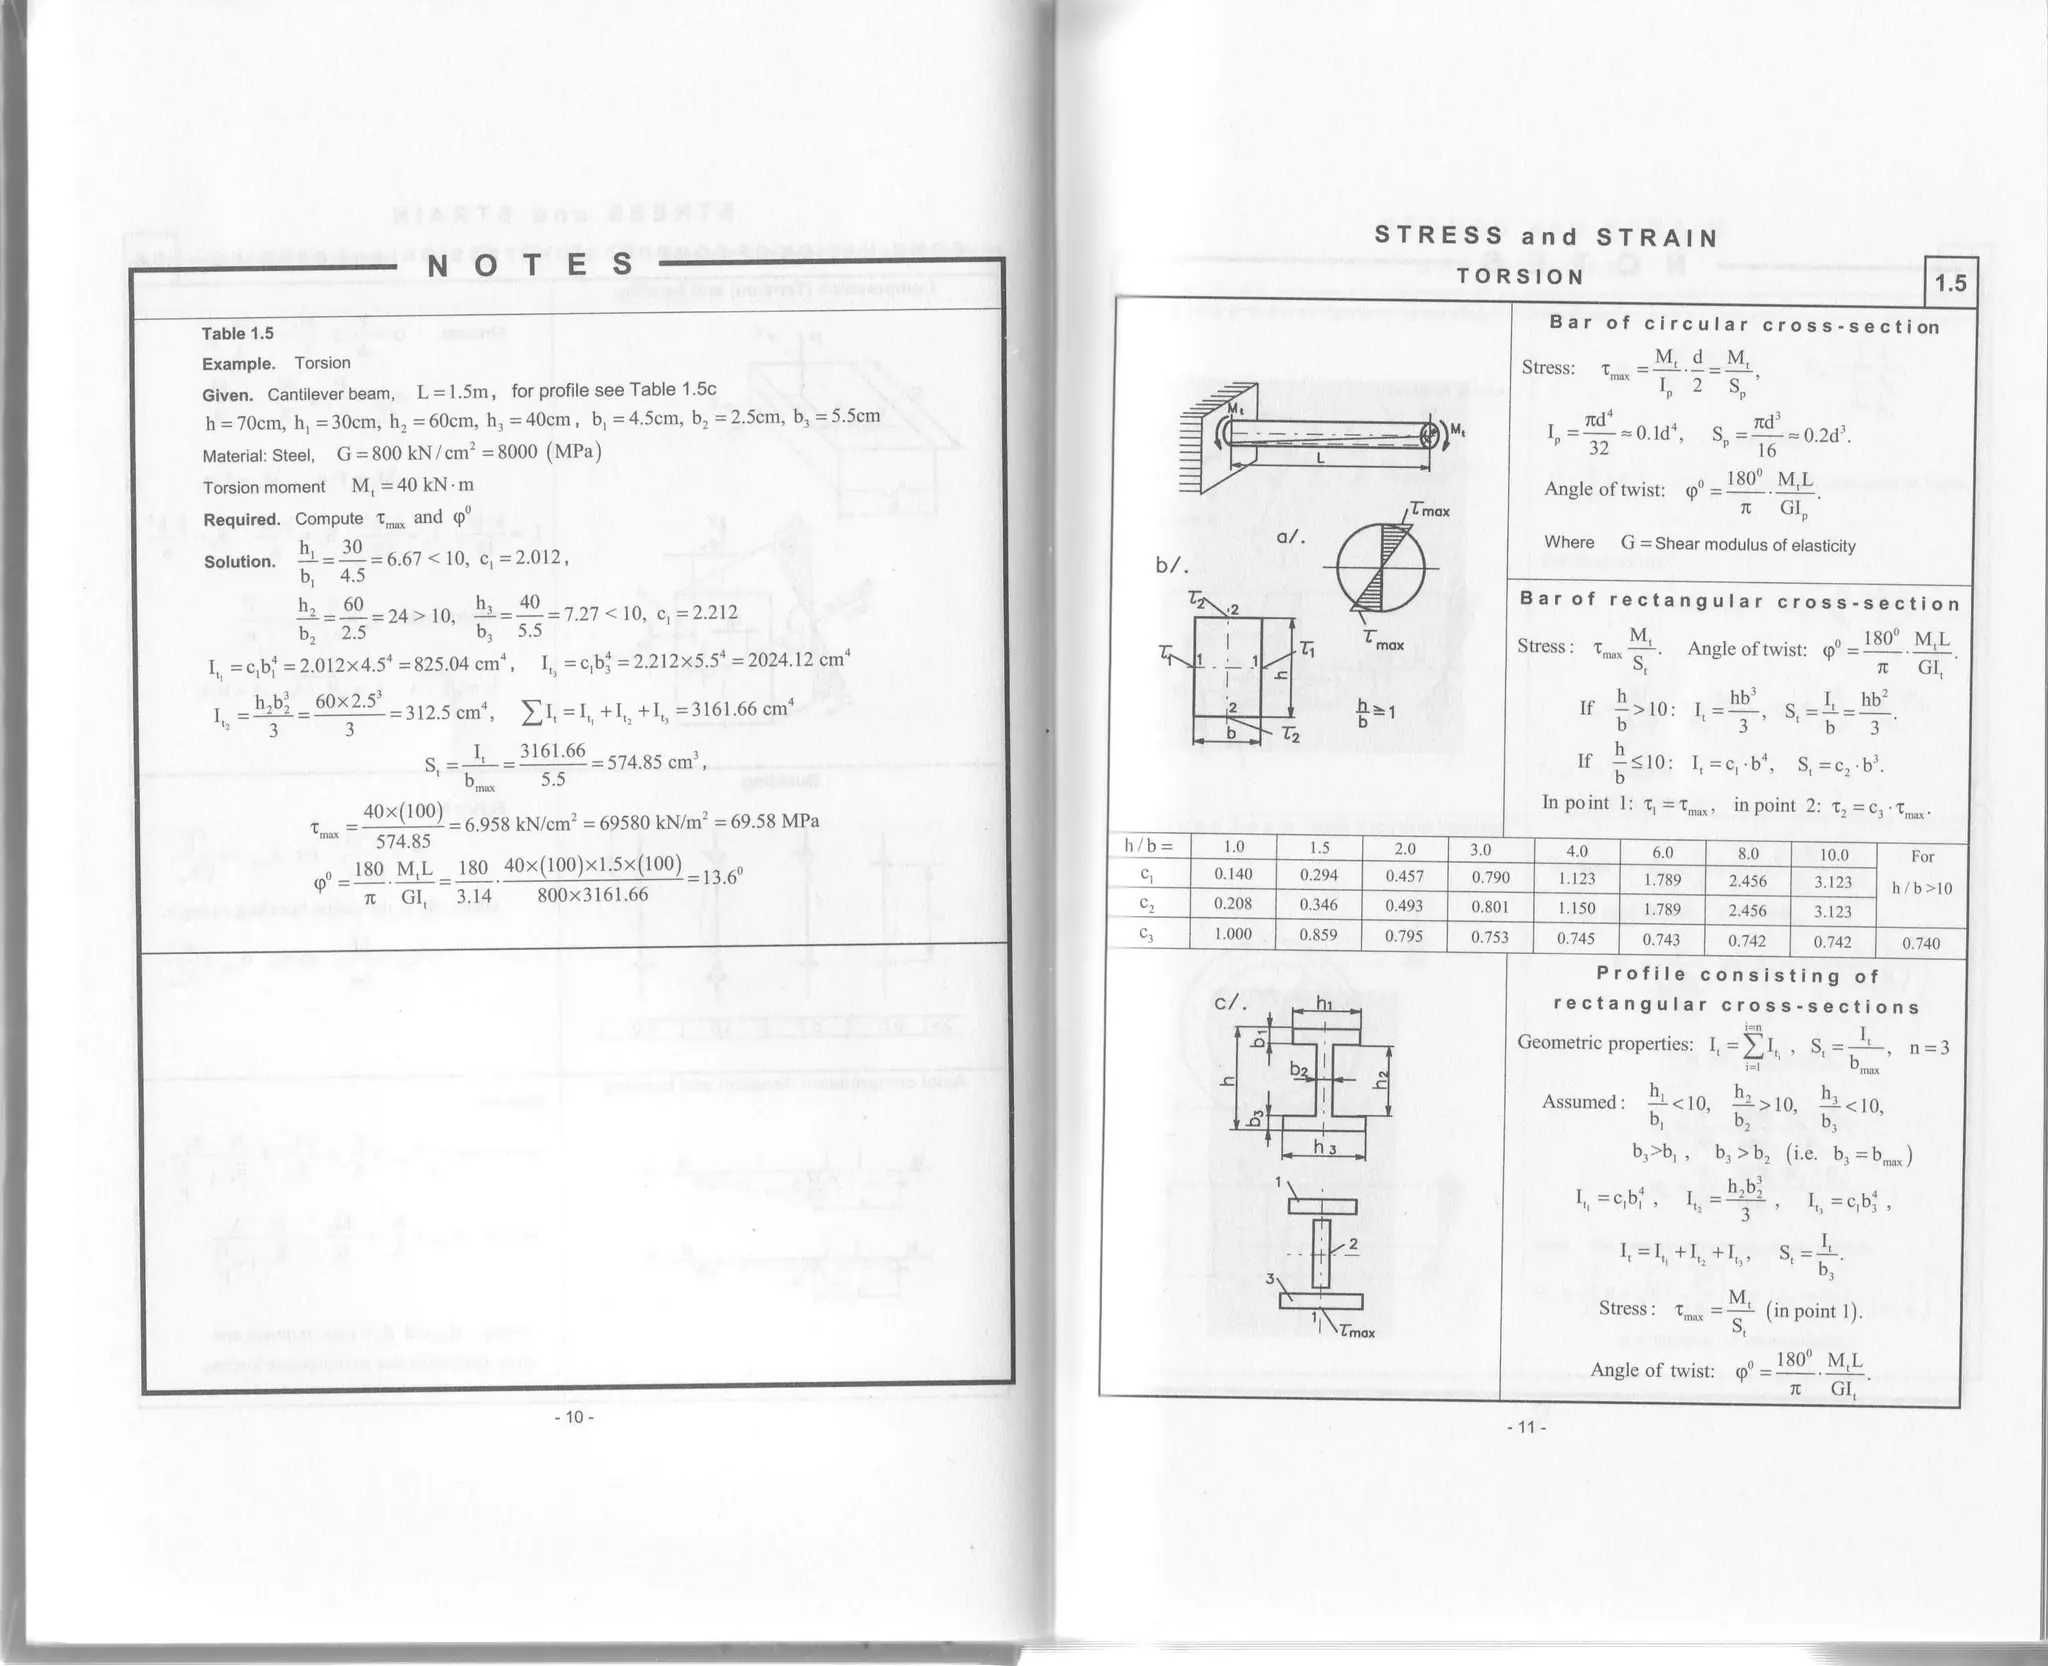 N O T E S
Table 1.5
Example. Torsion
Given. Cantilever beam, L = 1.5m, for profile see Table 1.5c
h = 70cm, h₁ = 30cm, h₂ = 60cm, h₃ = 40cm, b₁ = 4.5cm, b₂ = 2.5cm, b₃ = 5.5cm
Material: Steel, G = 800 kN/cm² = 8000 (MPa)
Torsion moment Mₜ = 40 kN·m
Required. Compute τmax and φ⁰
Solution. h₁/b₁ = 30/4.5 = 6.67 < 10, c₁ = 2.012,
h₂/b₂ = 60/2.5 = 24 > 10, h₃/b₃ = 40/5.5 = 7.27 < 10, c₁ = 2.212
Iₜ₁ = c₁b₁⁴ = 2.012x4.5⁴ = 825.04 cm⁴, Iₜ₃ = c₁b₃⁴ = 2.212x5.5⁴ = 2024.12 cm⁴
Iₜ₂ = h₂b₂³/3 = 60x2.5³/3 = 312.5 cm⁴, ∑Iₜ = Iₜ₁ + Iₜ₂ + Iₜ₃ = 3161.66 cm⁴
Sₜ = Iₜ/bmax = 3161.66/5.5 = 574.85 cm³,
τmax = 40x(100)/574.85 = 6.958 kN/cm² = 69580 kN/m² = 69.58 MPa
φ⁰ = 180/π · MₜL/GIₜ = 180/3.14 · 40x(100)x1.5x(100)/800x3161.66 = 13.6⁰
- 10 -
STRESS and STRAIN
TORSION
1.5
Mₜ
Mₜ
L
a/.
τmax
τmax
b/.
τ₂
2
τ₁
1
1
τ₁
h
2
b
τ₂
h/b ≥ 1
Bar of circular cross-section
Stress: τmax = Mₜ/Iₚ · d/2 = Mₜ/Sₚ,
Iₚ = πd⁴/32 ≈ 0.1d⁴, Sₚ = πd³/16 ≈ 0.2d³.
Angle of twist: φ⁰ = 180⁰/π · MₜL/GIₚ.
Where G = Shear modulus of elasticity
Bar of rectangular cross-section
Stress: τmax Mₜ/Sₜ. Angle of twist: φ⁰ = 180⁰/π · MₜL/GIₜ.
If h/b > 10: Iₜ = hb³/3, Sₜ = Iₜ/b = hb²/3.
If h/b ≤ 10: Iₜ = c₁·b⁴, Sₜ = c₂·b³.
In point 1: τ₁ = τmax, in point 2: τ₂ = c₃·τmax.
h/b = 1.0 1.5 2.0 3.0 4.0 6.0 8.0 10.0 For h/b >10
c₁ 0.140 0.294 0.457 0.790 1.123 1.789 2.456 3.123
c₂ 0.208 0.346 0.493 0.801 1.150 1.789 2.456 3.123
c₃ 1.000 0.859 0.795 0.753 0.745 0.743 0.742 0.742 0.740
c/.
h₁
b₁
b₂
h
h₂
b₃
h₃
1
2
3
1
τmax
Profile consisting of
rectangular cross-sections
Geometric properties: Iₜ = ∑(i=1, i=n) Iₜᵢ, Sₜ = Iₜ/bmax, n = 3
Assumed: h₁/b₁ < 10, h₂/b₂ > 10, h₃/b₃ < 10,
b₃>b₁, b₃ > b₂ (i.e. b₃ = bmax)
Iₜ₁ = c₁b₁⁴, Iₜ₂ = h₂b₂³/3, Iₜ₃ = c₁b₃⁴,
Iₜ = Iₜ₁ + Iₜ₂ + Iₜ₃, Sₜ = Iₜ/b₃.
Stress: τmax = Mₜ/Sₜ (in point 1).
Angle of twist: φ⁰ = 180⁰/π · MₜL/GIₜ.
- 11 -